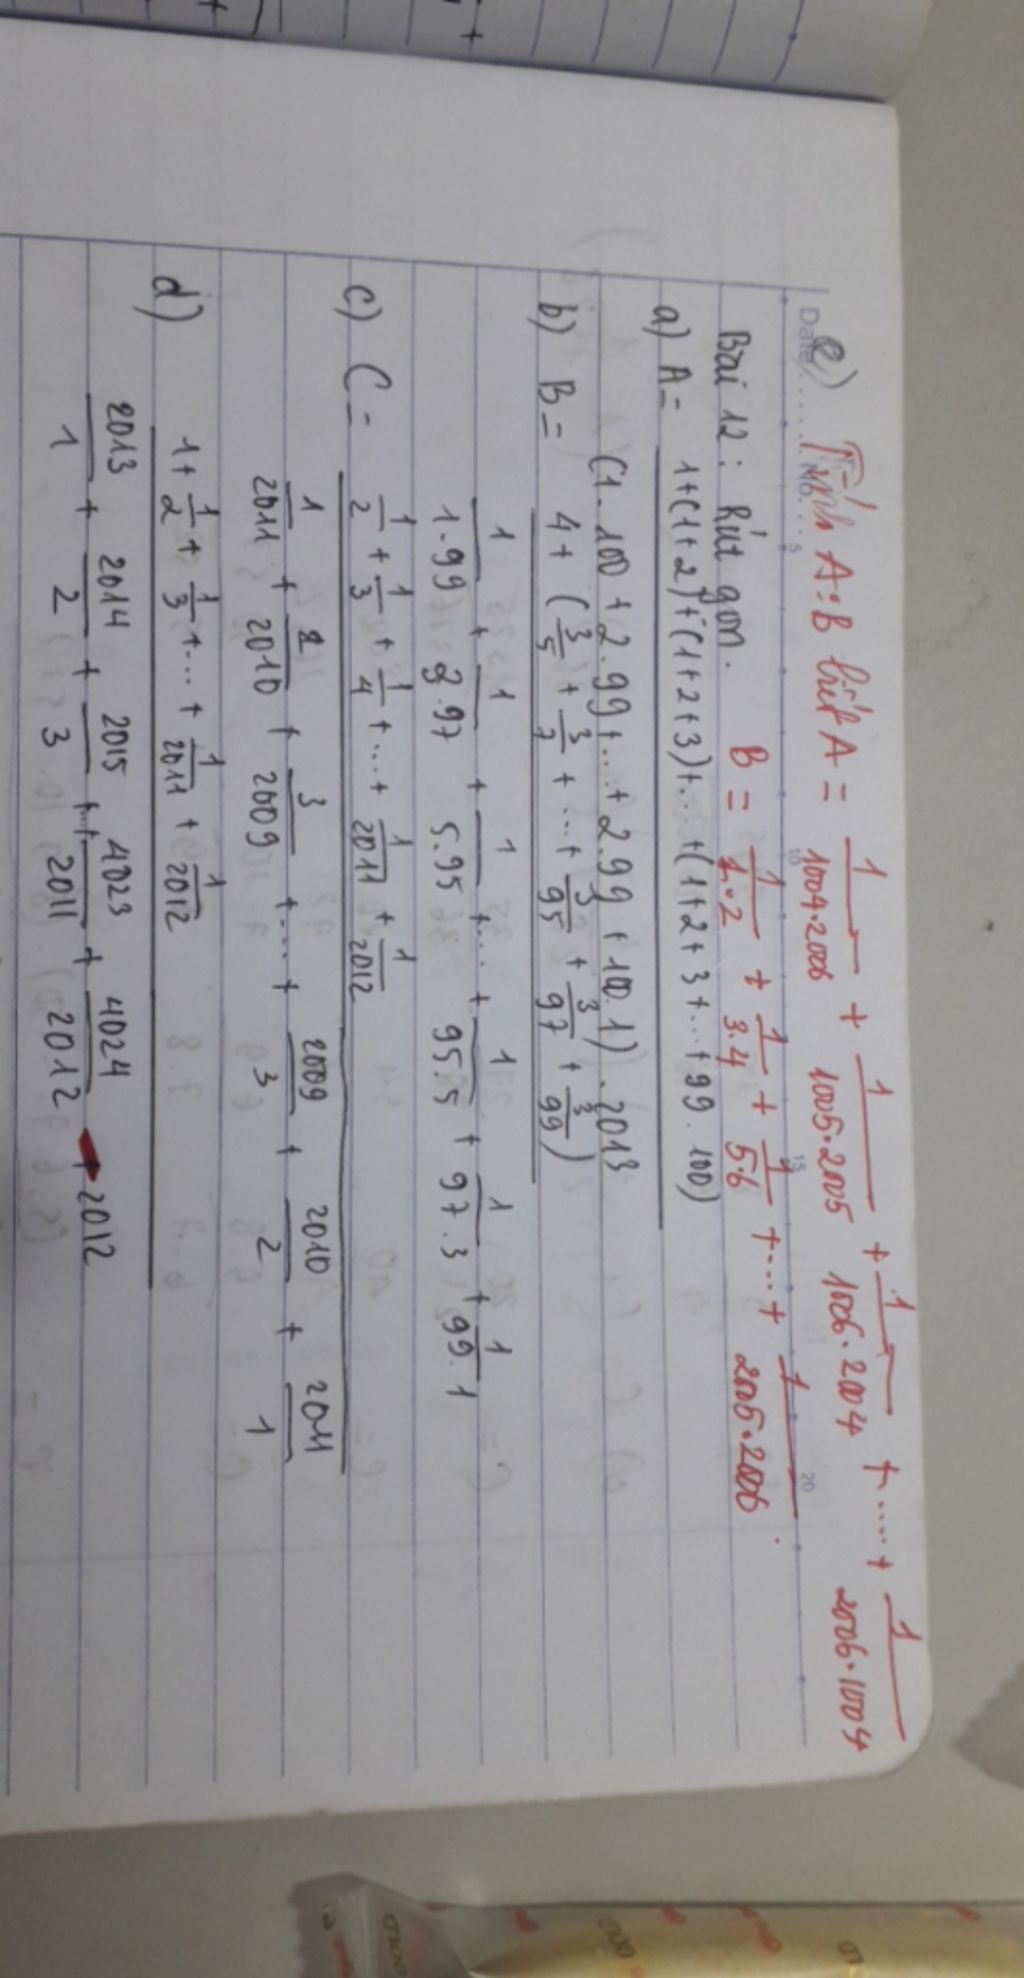 Date..... No.....
5 10 15 20
e) Tính A:B biết A = 1/1004.2006 + 1/1005.2005 + 1/1006.2004 + ..... + 1/2006.1004
B = 1/1.2 + 1/3.4 + 1/5.6 + .... + 1/2005.2006.
Bài 12: Rút gọn.
a) A = 1+(1+2)+(1+2+3)+...+(1+2+3+...+99.100)
(1.100+2.99+...+2.99+100.1).2013
b) B = 4+(3/5+3/7+...+3/95+3/97+3/99)
1/1.99 + 1/3.97 + 1/5.95 + ... + 1/95.5 + 1/97.3 + 1/99.1
c) C = 1/2+1/3+1/4+...+1/2011+1/2012
1/2011 + 2/2010 + 3/2009 + ... + 2009/3 + 2010/2 + 2011/1
d) 1+1/2+1/3+...+1/2011+1/2012
2013/1 + 2014/2 + 2015/3 + ... 4023/2011 + 4024/2012 2012